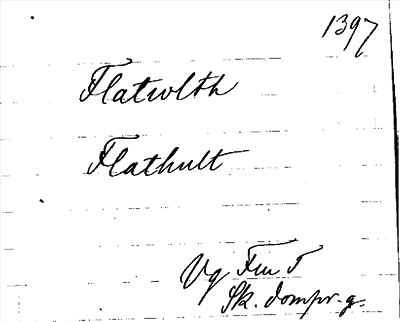 1397
Flatwlth
Flathult
Vg Fru T
Sk. dompr. g.